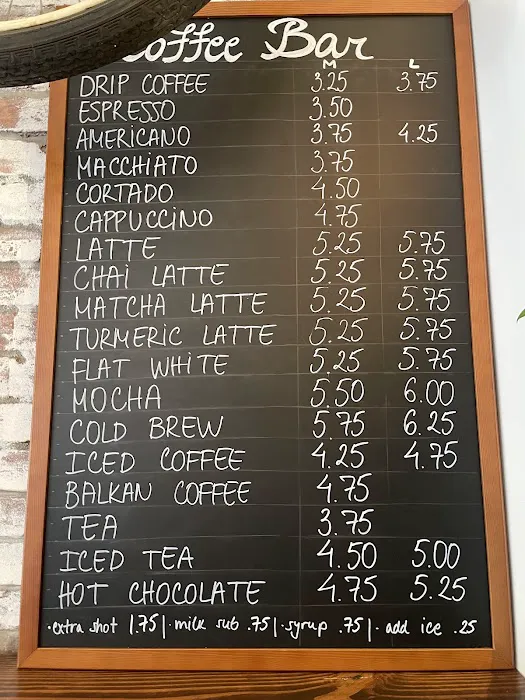 Coffee Bar
M L
DRIP COFFEE 3.25 3.75
ESPRESSO 3.50
AMERICANO 3.75 4.25
MACCHIATO 3.75
CORTADO 4.50
CAPPUCCiNO 4.75
LATTE 5.25 5.75
CHAi LATTE 5.25 5.75
MATCHA LATTE 5.25 5.75
TURMERIC LATTE 5.25 5.75
FLAT WHITE 5.25 5.75
MOCHA 5.50 6.00
COLD BREW 5.75 6.25
ICED COFFEE 4.25 4.75
BALKAN COFFEE 4.75
TEA 3.75
ICED TEA 4.50 5.00
HOT CHOCOLATE 4.75 5.25
·extra shot 1.75|·milk sub .75|·syrup .75|·add ice .25